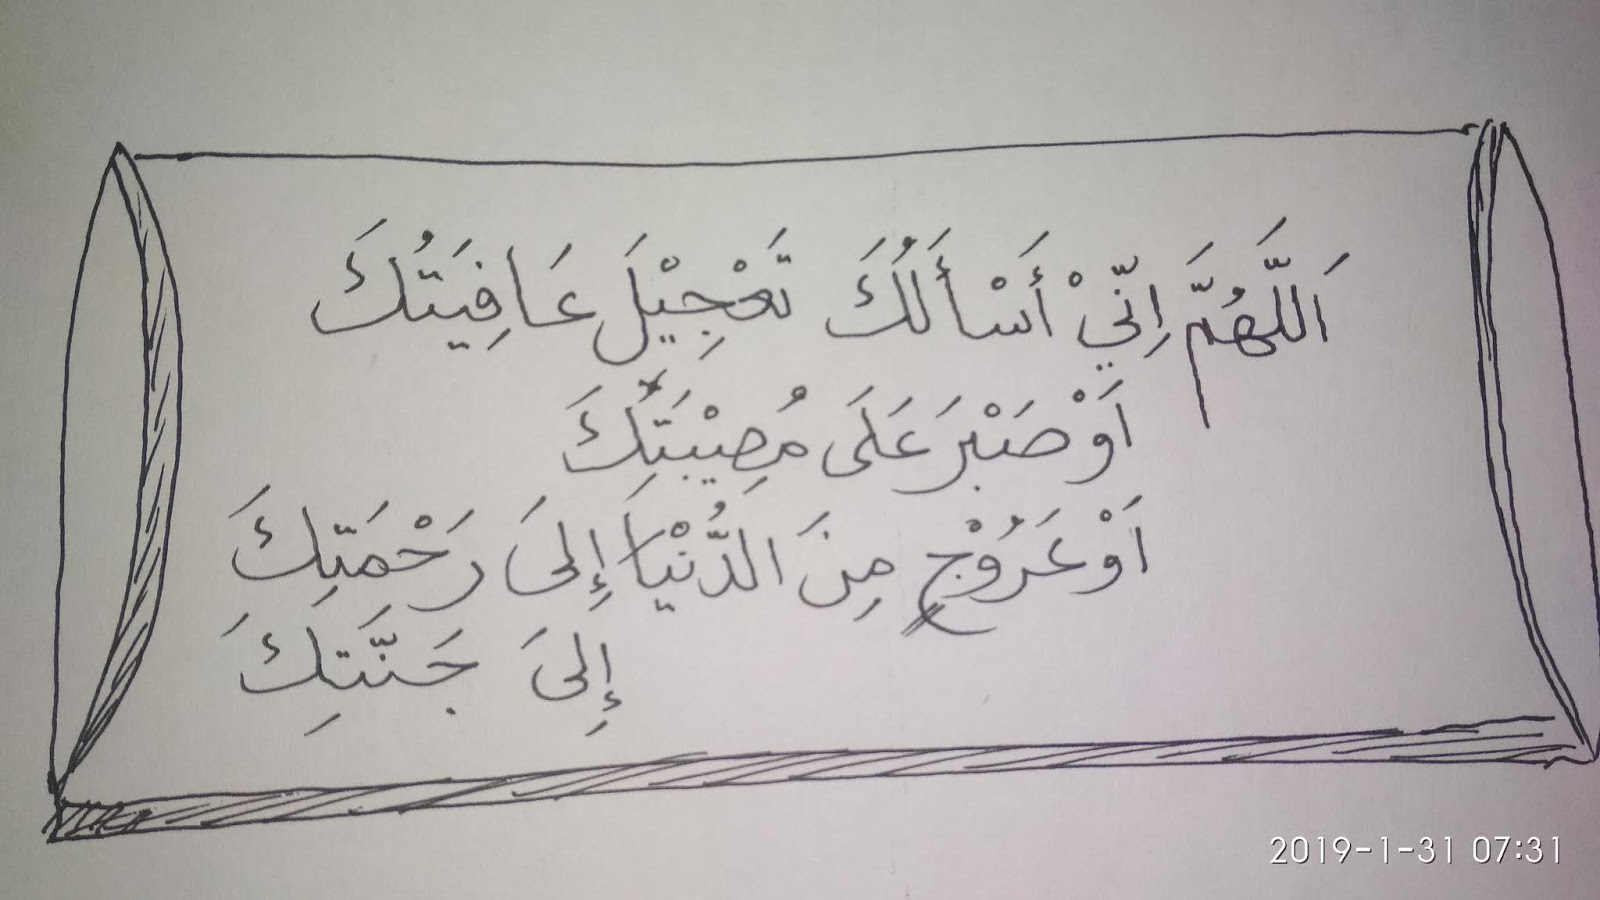 اَللَّهُمَّ اِنِّيْ أَسْأَلُكَ تَعْجِيْلَ عَافِيَتُكَ
اَوْ صَبْرَ عَلَى مُصِيْبَتِكَ
اَوْ عَرُوْجٍ مِنَ الدُّنْيَا إِلىَ رَحْمَتِكَ
إِلىَ جَنَّتِكَ
2019-1-31 07:31